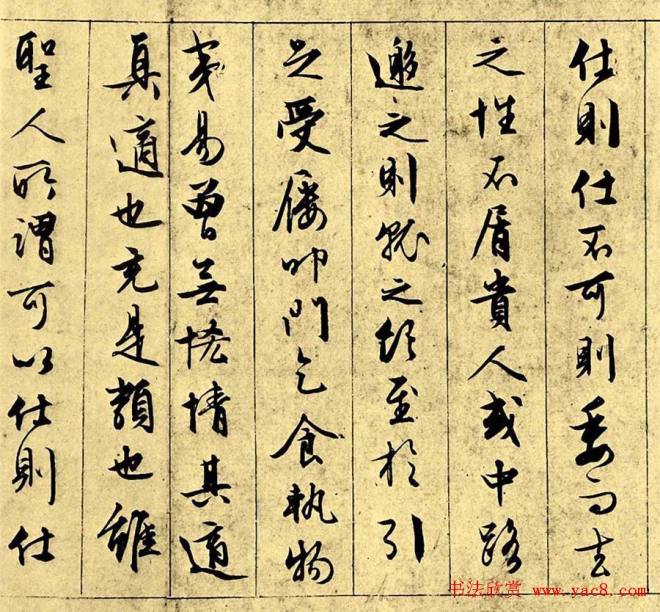 仕則仕不可則委而去
之性不屑貴人或中路
邀之則就之終至於引
足受屨叩門乞食執物
易曾無情其適
真適也充是類也雖
聖人所謂可以仕則仕
书法欣赏 www.yac8.com